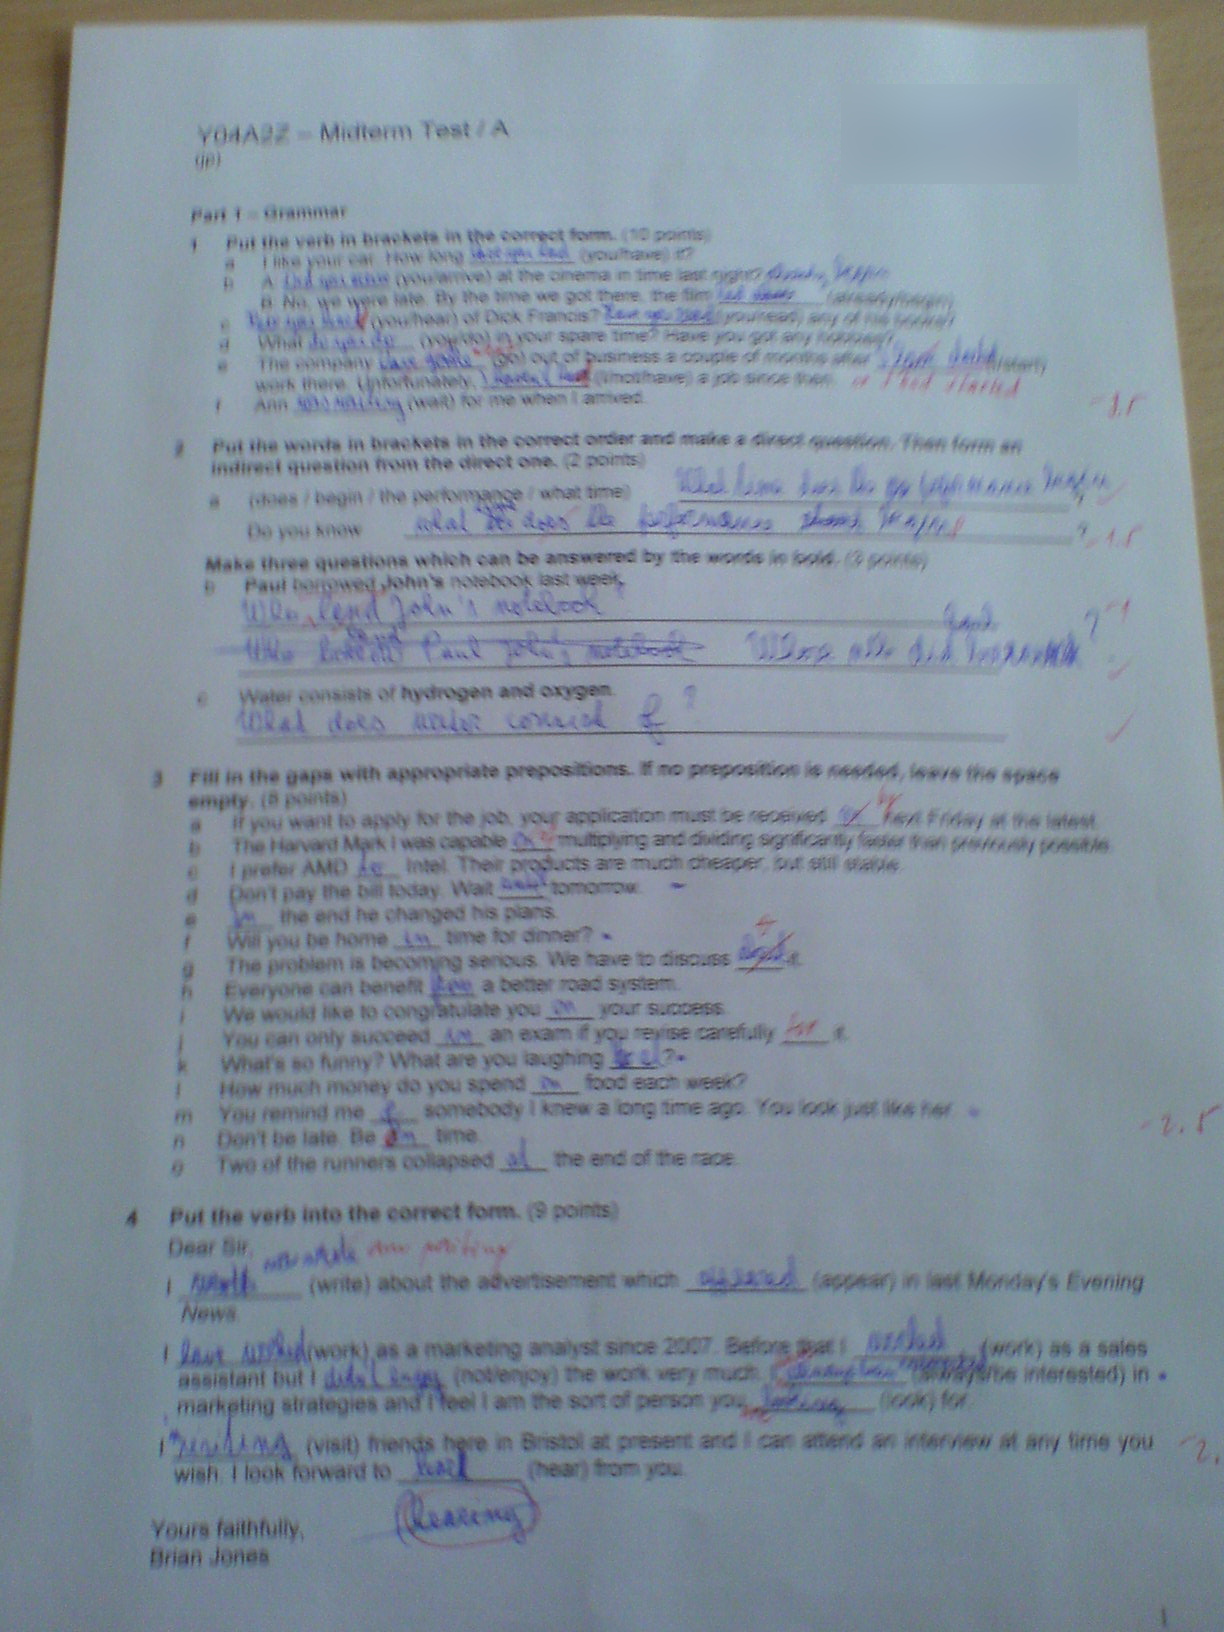 Y04A2Z – Midterm Test / A
(jp)
Part 1 – Grammar
1 Put the verb in brackets in the correct form. (10 points)
a I like your car. How long have you had (you/have) it?
b A: Did you arrive (you/arrive) at the cinema in time last night?
B: No, we were late. By the time we got there, the film (already/begin)
c Have you heard (you/hear) of Dick Francis? Have you read (you/read) any of his books?
d What do you do (you/do) in your spare time? Have you got any hobbies?
e The company have gone (go) out of business a couple of months after (I/start)
work there. Unfortunately, I haven't had (I/not/have) a job since then. I had started
f Ann was waiting (wait) for me when I arrived.
2 Put the words in brackets in the correct order and make a direct question. Then form an
indirect question from the direct one. (2 points)
a (does / begin / the performance / what time) What time does the performance begin
Do you know what does the performance begins ? -1.5
Make three questions which can be answered by the words in bold. (3 points)
b Paul borrowed John's notebook last week.
Who lend John's notebook? -1
Who Paul John's notebook Whose did ?
c Water consists of hydrogen and oxygen.
What does water consist of?
3 Fill in the gaps with appropriate prepositions. If no preposition is needed, leave the space
empty. (8 points)
a If you want to apply for the job, your application must be received by next Friday at the latest.
b The Harvard Mark I was capable of multiplying and dividing significantly faster than previously possible.
c I prefer AMD to Intel. Their products are much cheaper, but still stable.
d Don't pay the bill today. Wait until tomorrow.
e In the end he changed his plans.
f Will you be home in time for dinner?
g The problem is becoming serious. We have to discuss about it.
h Everyone can benefit from a better road system.
i We would like to congratulate you on your success.
j You can only succeed in an exam if you revise carefully for it.
k What's so funny? What are you laughing at?
l How much money do you spend on food each week?
m You remind me of somebody I knew a long time ago. You look just like her.
-2.5
n Don't be late. Be on time.
o Two of the runners collapsed at the end of the race.
4 Put the verb into the correct form. (9 points)
Dear Sir, am writing
I (write) about the advertisement which appeared (appear) in last Monday's Evening
News.
I have worked (work) as a marketing analyst since 2007. Before that I worked (work) as a sales
assistant but I didn't enjoy (not/enjoy) the work very much. I (always/be interested) in
marketing strategies and I feel I am the sort of person you looking (look) for.
I visiting (visit) friends here in Bristol at present and I can attend an interview at any time you
wish. I look forward to hear (hear) from you.
(hearing)
Yours faithfully,
Brian Jones
1